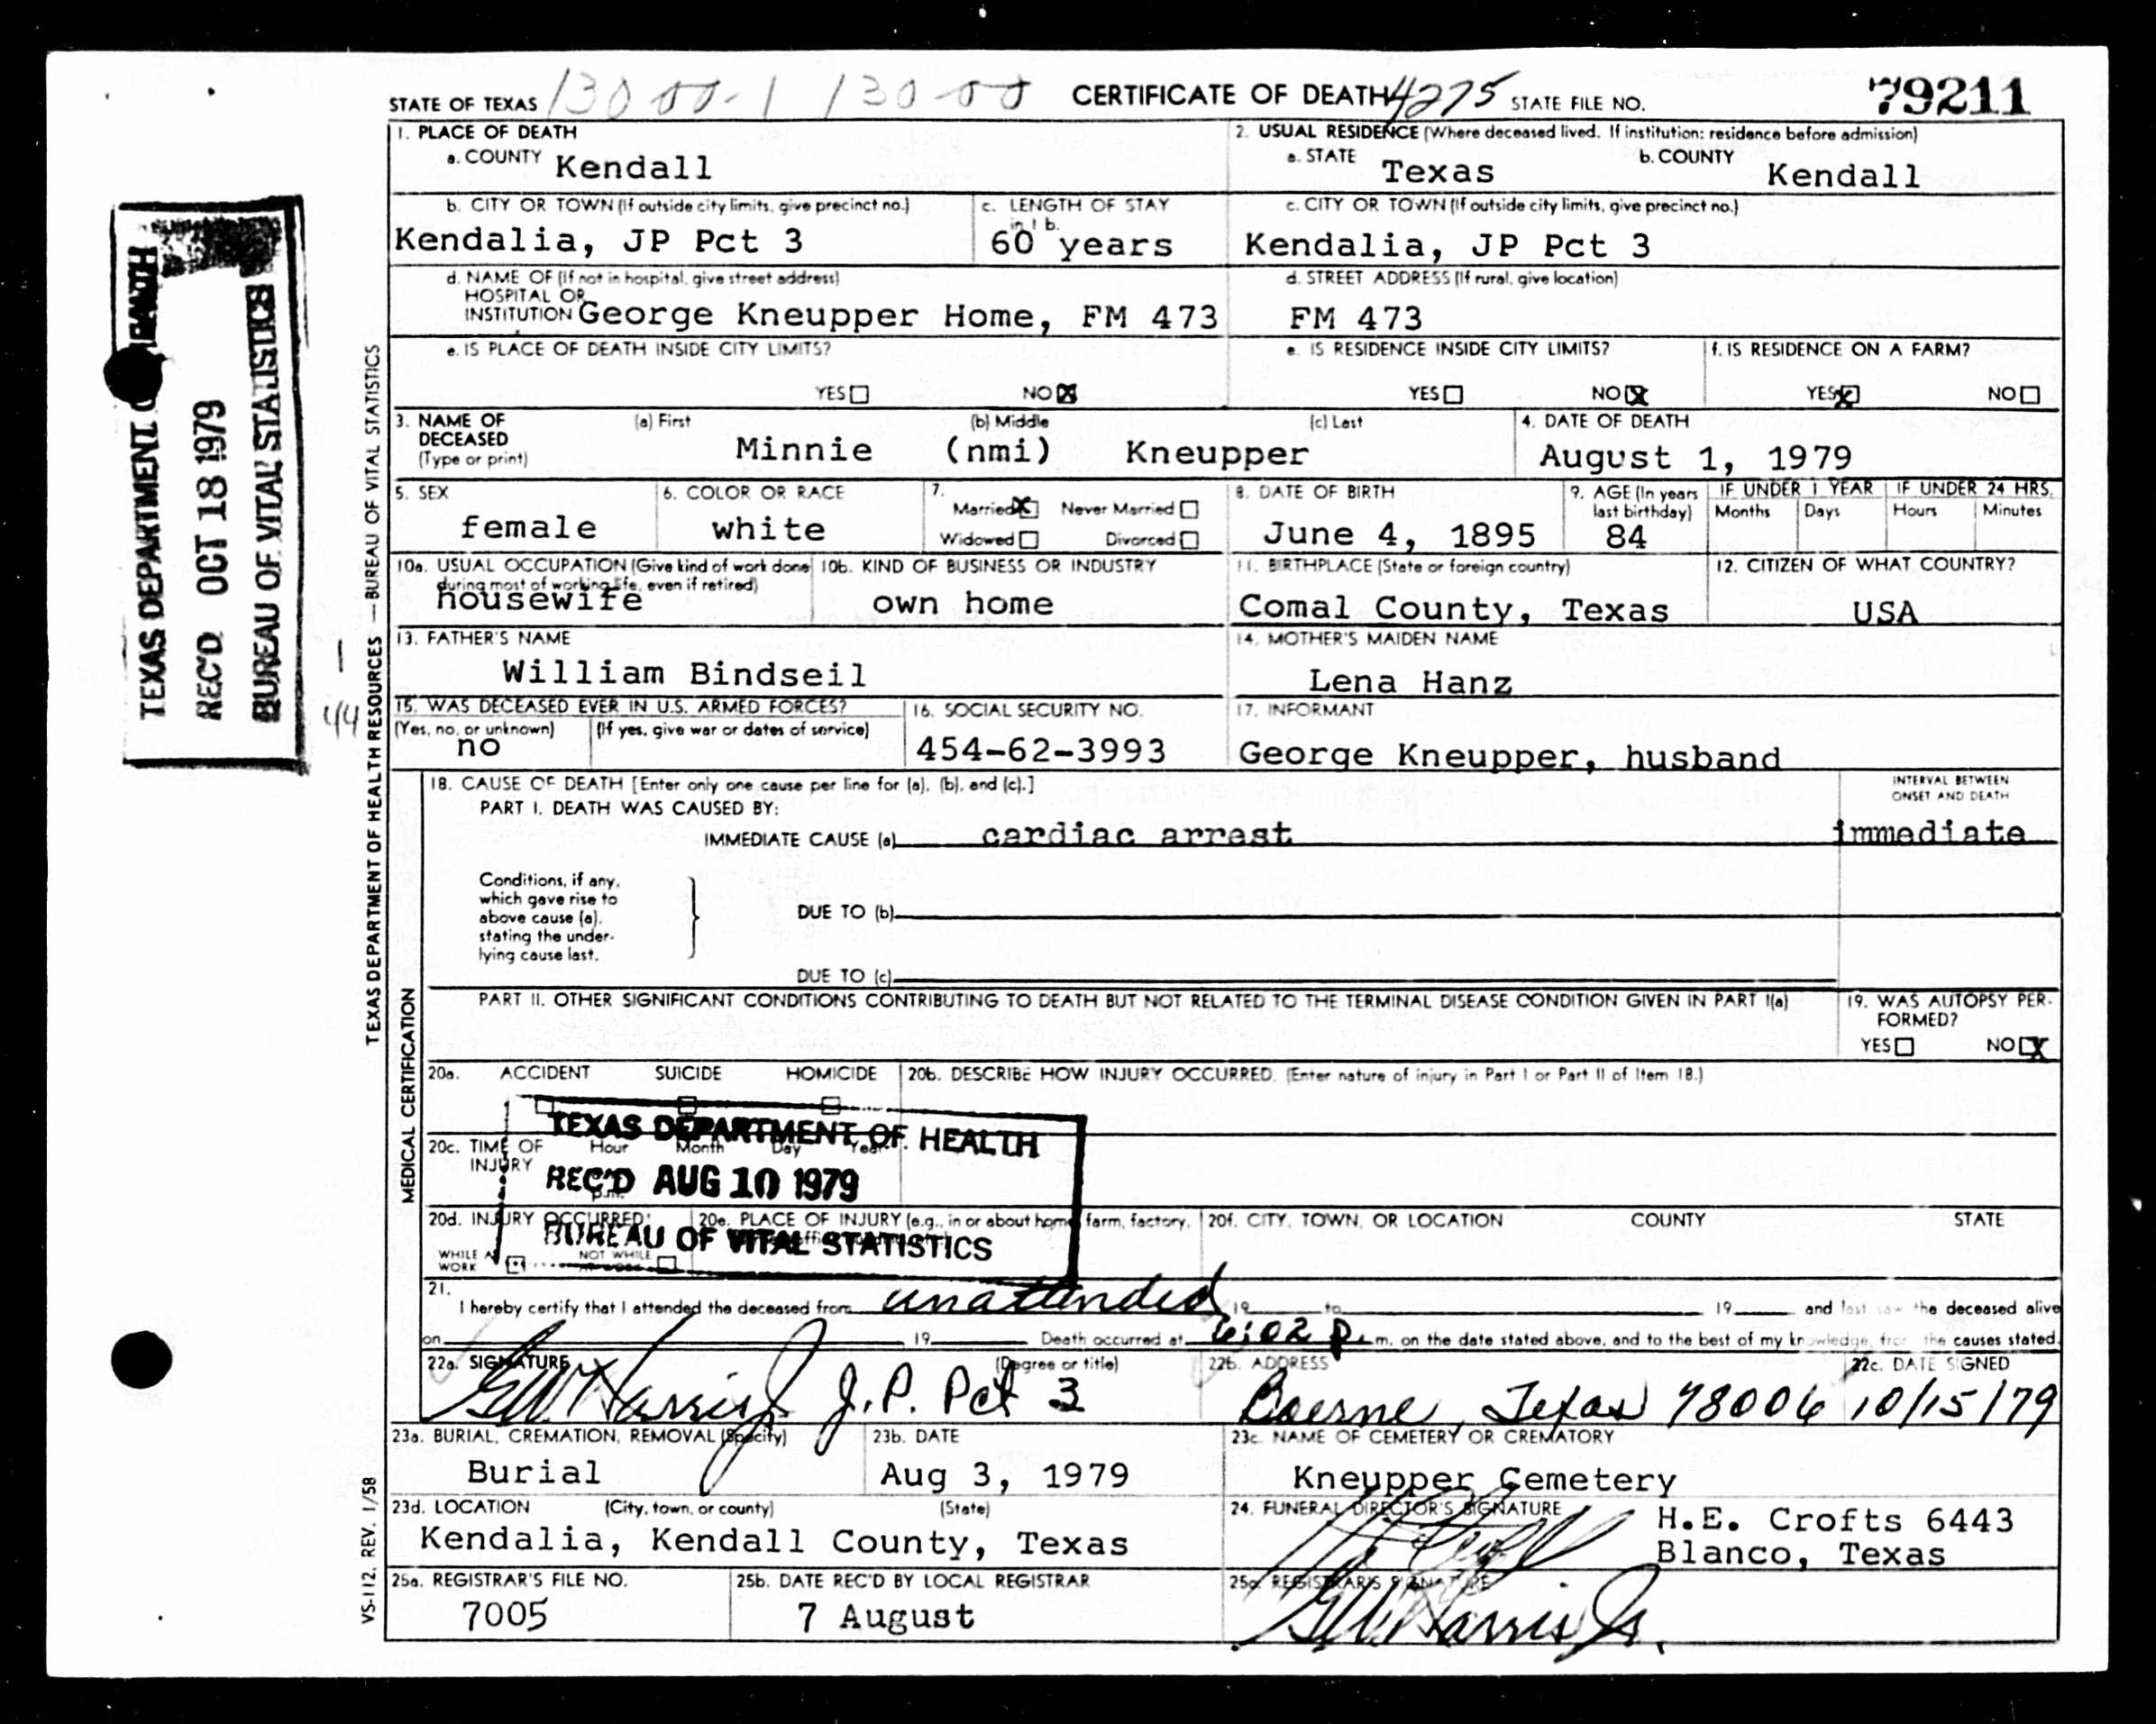 STATE OF TEXAS 13000-1 130-00 CERTIFICATE OF DEATH 4275 STATE FILE NO. 79211
1. PLACE OF DEATH
a. COUNTY Kendall
2. USUAL RESIDENCE (Where deceased lived. If institution: residence before admission)
a. STATE Texas b. COUNTY Kendall
b. CITY OR TOWN (If outside city limits, give precinct no.)
Kendalia, JP Pct 3
c. LENGTH OF STAY
in 1 b.
60 years
c. CITY OR TOWN (If outside city limits, give precinct no.)
Kendalia, JP Pct 3
d. NAME OF (If not in hospital, give street address)
HOSPITAL OR
INSTITUTION George Kneupper Home, FM 473
d. STREET ADDRESS (If rural, give location)
FM 473
e. IS PLACE OF DEATH INSIDE CITY LIMITS?
YES NO X
e. IS RESIDENCE INSIDE CITY LIMITS?
YES NO X
f. IS RESIDENCE ON A FARM?
YES X NO
3. NAME OF
DECEASED
(Type or print)
(a) First (b) Middle (c) Last
Minnie (nmi) Kneupper
4. DATE OF DEATH
August 1, 1979
5. SEX
female
6. COLOR OR RACE
white
7.
Married X Never Married
Widowed Divorced
8. DATE OF BIRTH
June 4, 1895
9. AGE (In years
last birthday)
84
IF UNDER 1 YEAR
Months Days
IF UNDER 24 HRS.
Hours Minutes
10a. USUAL OCCUPATION (Give kind of work done
during most of working life, even if retired)
housewife
10b. KIND OF BUSINESS OR INDUSTRY
own home
11. BIRTHPLACE (State or foreign country)
Comal County, Texas
12. CITIZEN OF WHAT COUNTRY?
USA
13. FATHER'S NAME
William Bindseil
14. MOTHER'S MAIDEN NAME
Lena Hanz
15. WAS DECEASED EVER IN U.S. ARMED FORCES?
(Yes, no, or unknown) (If yes, give war or dates of service)
no
16. SOCIAL SECURITY NO.
454-62-3993
17. INFORMANT
George Kneupper, husband
18. CAUSE OF DEATH [Enter only one cause per line for (a), (b), and (c).]
PART I. DEATH WAS CAUSED BY:
INTERVAL BETWEEN
ONSET AND DEATH
IMMEDIATE CAUSE (a) cardiac arrest immediate
Conditions, if any,
which gave rise to
above cause (a),
stating the under-
lying cause last.
DUE TO (b)
DUE TO (c)
PART II. OTHER SIGNIFICANT CONDITIONS CONTRIBUTING TO DEATH BUT NOT RELATED TO THE TERMINAL DISEASE CONDITION GIVEN IN PART I(a)
19. WAS AUTOPSY PER-
FORMED?
YES NO X
20a. ACCIDENT SUICIDE HOMICIDE
20b. DESCRIBE HOW INJURY OCCURRED. (Enter nature of injury in Part I or Part II of Item 18.)
20c. TIME OF
INJURY
Hour Month Day Year
p.m.
TEXAS DEPARTMENT OF HEALTH
REC'D AUG 10 1979
BUREAU OF VITAL STATISTICS
20d. INJURY OCCURRED:
WHILE AT
WORK
NOT WHILE
AT WORK
20e. PLACE OF INJURY (e.g., in or about home, farm, factory,
20f. CITY, TOWN, OR LOCATION COUNTY STATE
21.
I hereby certify that I attended the deceased from unattended 19 to 19 and last saw the deceased alive
on 19 Death occurred at 6:02 p. m. on the date stated above, and to the best of my knowledge, from the causes stated.
22a. SIGNATURE (Degree or title)
GW Harris Jr J.P. Pct 3
22b. ADDRESS
Boerne, Texas 78006
22c. DATE SIGNED
10/15/79
23a. BURIAL, CREMATION, REMOVAL (Specify)
Burial
23b. DATE
Aug 3, 1979
23c. NAME OF CEMETERY OR CREMATORY
Kneupper Cemetery
23d. LOCATION (City, town, or county) (State)
Kendalia, Kendall County, Texas
24. FUNERAL DIRECTOR'S SIGNATURE
H.E. Crofts 6443
Blanco, Texas
25a. REGISTRAR'S FILE NO.
7005
25b. DATE REC'D BY LOCAL REGISTRAR
7 August
25c. REGISTRAR'S SIGNATURE
GW Harris Jr.
TEXAS DEPARTMENT OF HEALTH RESOURCES — BUREAU OF VITAL STATISTICS
MEDICAL CERTIFICATION
VS-112, REV. 1/58
TEXAS DEPARTMENT
REC'D OCT 18 1979
BUREAU OF VITAL STATISTICS
1
44